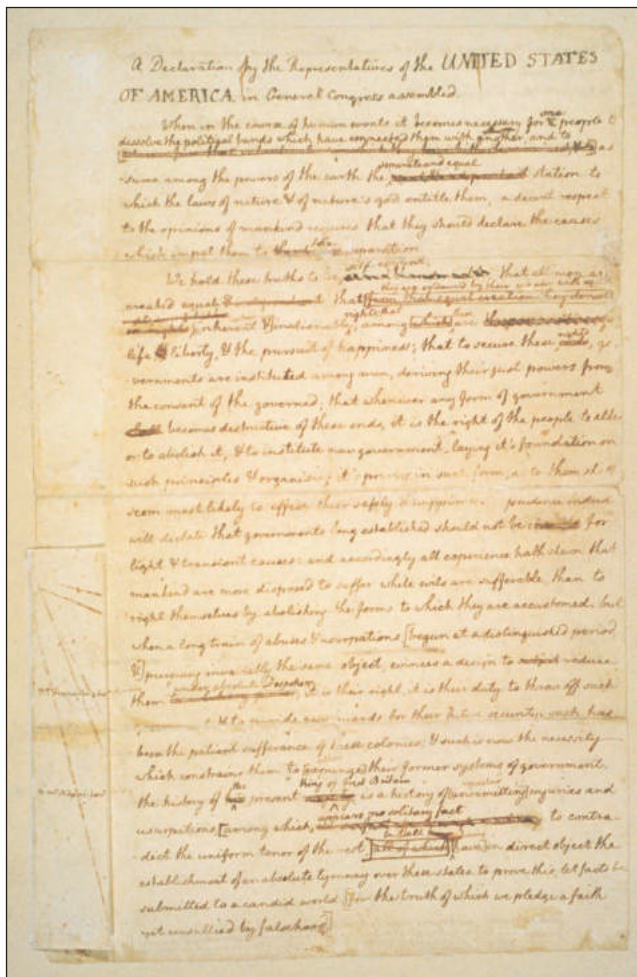 A Declaration by the Representatives of the UNITED STATES
OF AMERICA, in General Congress assembled.
When in the course of human events it becomes necessary for one people to
dissolve the political bands which have connected them with another, and to
as
separate and equal
-sume among the powers of the earth the station to
which the laws of nature & of nature's god entitle them, a decent respect
to the opinions of mankind requires that they should declare the causes
which impel them to the separation.
self-evident
We hold these truths to be that all men are
they are endowed by their creator with
created equal that from that equal creation they derive
rights that
inherent & inalienable among which are
life & liberty, & the pursuit of happiness; that to secure these rights, go
-vernments are instituted among men, deriving their just powers from
the consent of the governed; that whenever any form of government
becomes destructive of these ends, it is the right of the people to alter
or to abolish it, & to institute new government, laying it's foundation on
such principles & organising it's powers in such form, as to them shall
seem most likely to effect their safety & happiness. prudence indeed
will dictate that governments long established should not be changed for
light & transient causes: and accordingly all experience hath shewn that
mankind are more disposed to suffer while evils are sufferable, than to
right themselves by abolishing the forms to which they are accustomed. but
when a long train of abuses & usurpations [begun at a distinguished period
&] pursuing invariably the same object, evinces a design to reduce
under absolute Despotism
them it is their right, it is their duty to throw off such
& to provide new guards for their future security. such has
been the patient sufferance of these colonies; & such is now the necessity
which constrains them to [expunge] their former systems of government.
the king of Great Britain
the history of present is a history of [unremitting] injuries and
appears no solitary fact
usurpations, [among which, to contra-
-dict the uniform tenor of the rest all of which [have] in direct object the
establishment of an absolute tyranny over these states. to prove this, let facts be
submitted to a candid world [for the truth of which we pledge a faith
yet unsullied by falsehood]